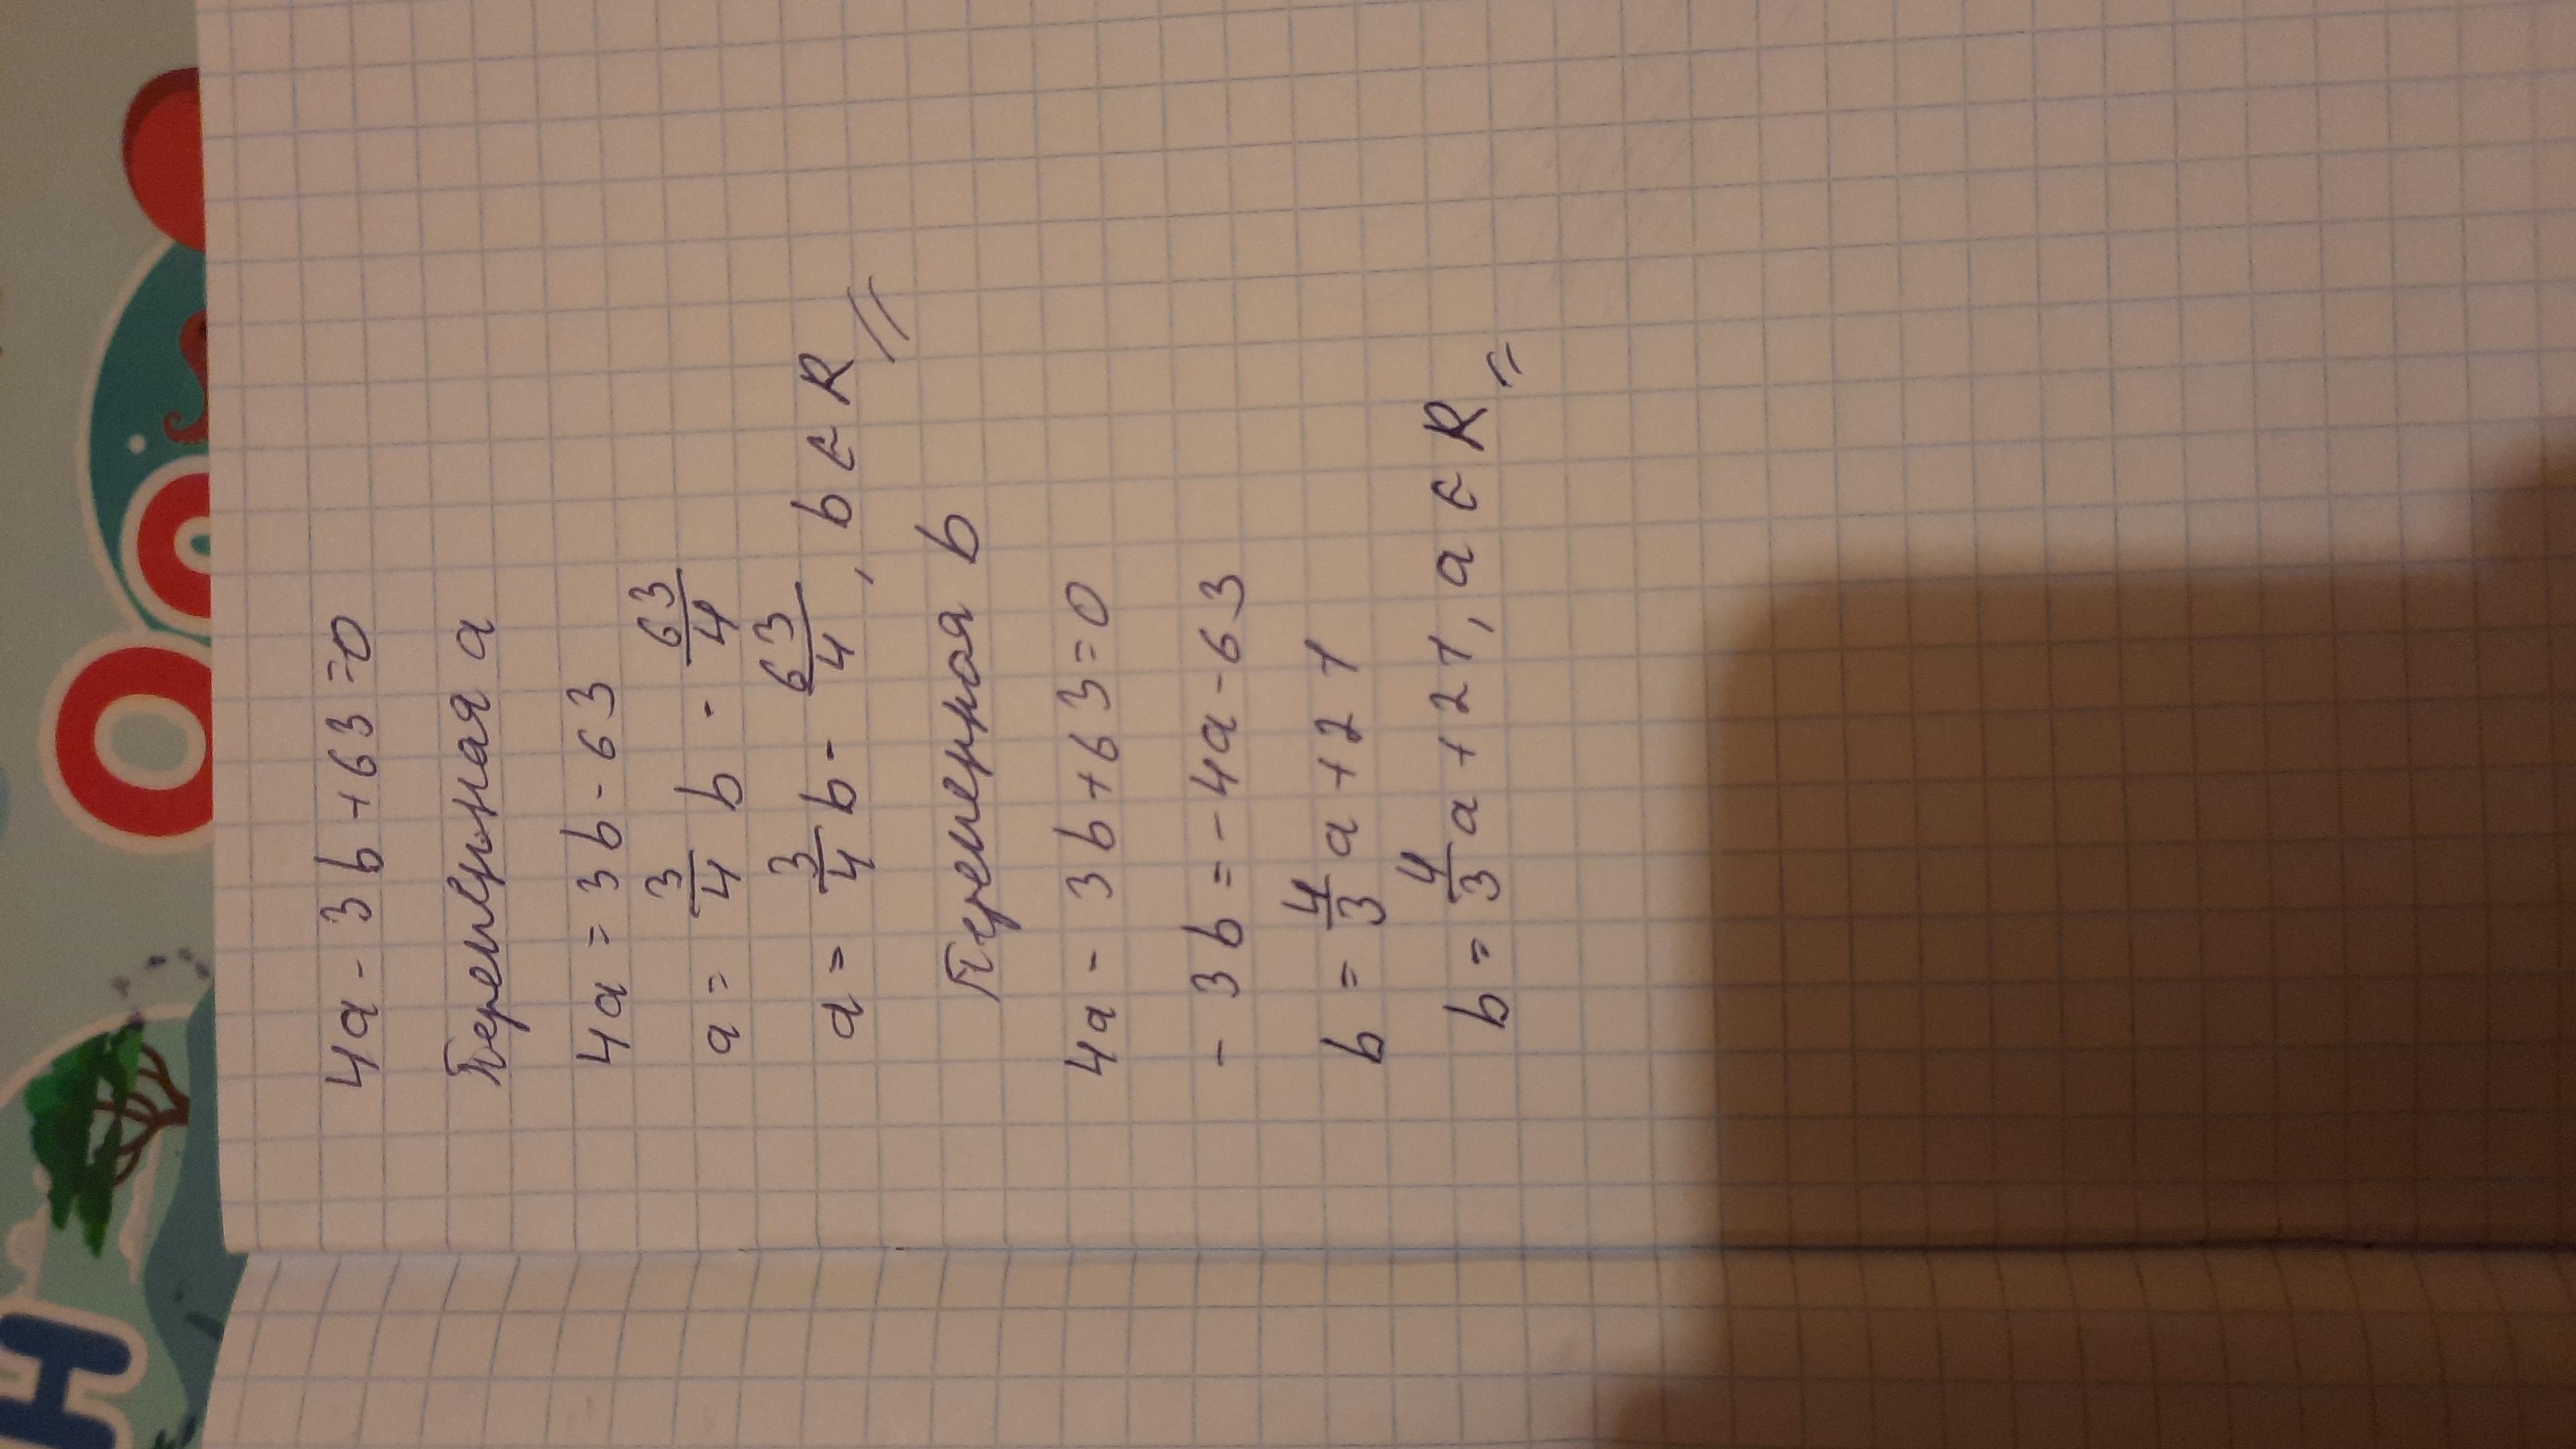 4a - 3b + 63 = 0
Переменная a
4a = 3b - 63
a = 3/4 b - 63/4
a = 3/4 b - 63/4, b ∈ R
Переменная b
4a - 3b + 63 = 0
- 3b = - 4a - 63
b = 4/3 a + 21
b = 4/3 a + 21, a ∈ R